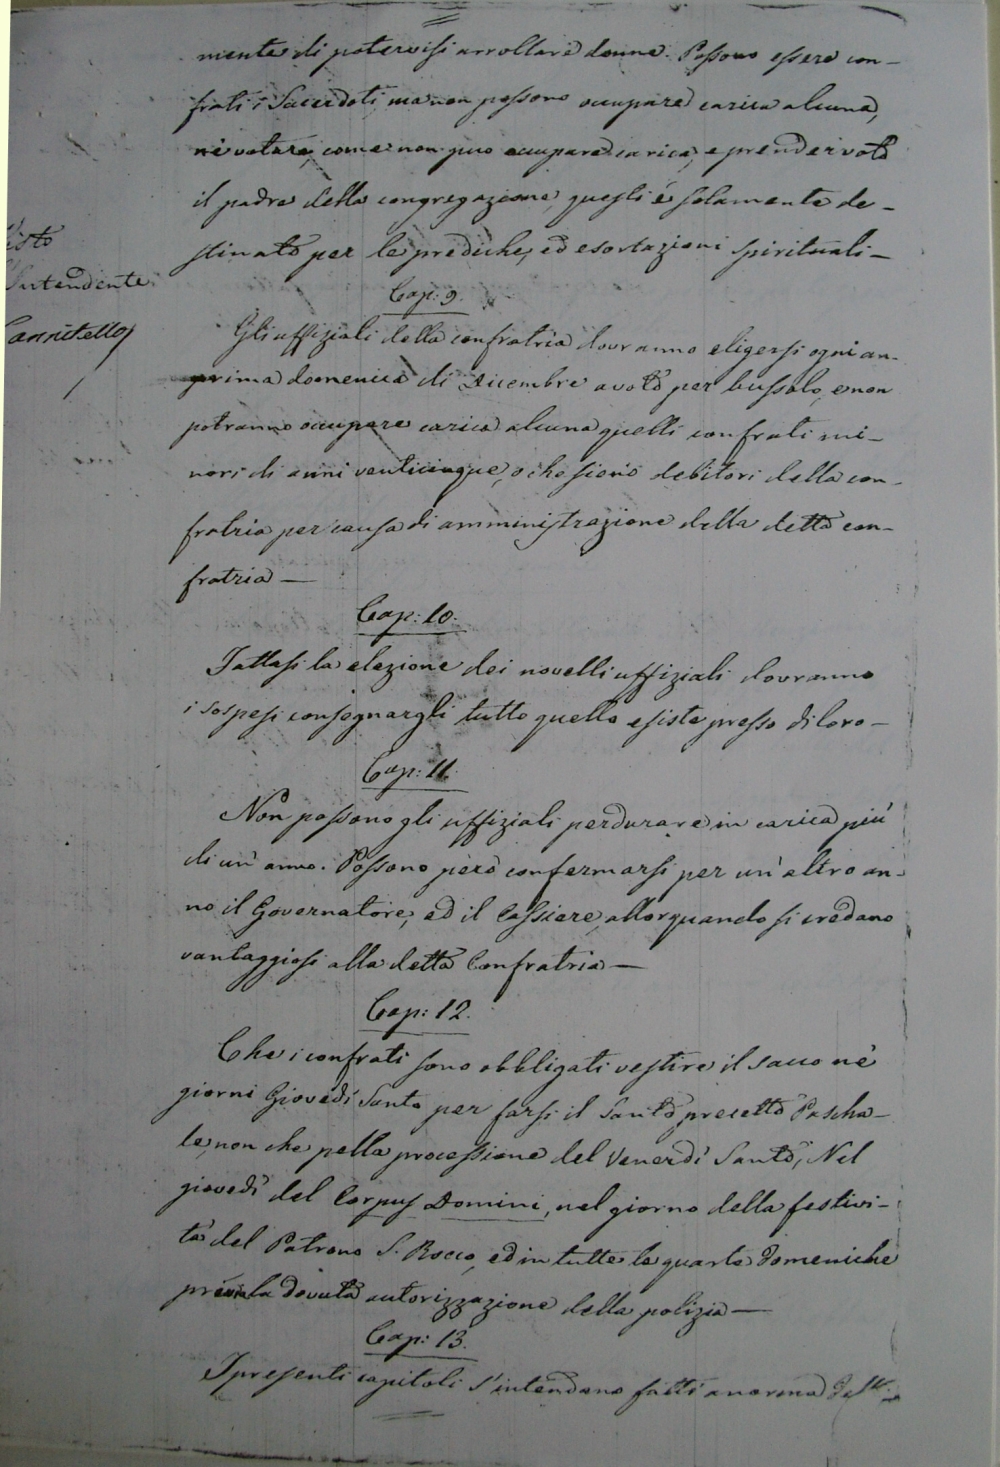 mente di potervisi arrollare donne. Possono essere con-
frati i Sacerdoti, ma non possono occupare carica alcuna,
nè votare, come non può occupare carica, e prender voto
il padre della congregazione, questi è solamente de-
stinato per le prediche, ed esortazioni spirituali-
Visto
Intendente
Cannitello
Cap: 9.
Gli uffiziali della confratria dovranno eligersi ogni an-
prima domenica di Dicembre a voto per bussolo, e non
potranno occupare carica alcuna quelli confrati mi-
nori di anni venticinque, o che sieno debitori della con-
fratria per causa di amministrazione della detta con-
fratria —
Cap: 10.
Fattasi la elezione dei novelli uffiziali dovranno
i sospesi consegnargli tutto quello esiste presso di loro -
Cap: 11.
Non possono gli uffiziali perdurare in carica più
di un' anno. Possono però confermarsi per un' altro an-
no il Governatore, ed il Cassiere, allorquando si credano
vantaggiosi alla detta Confratria —
Cap: 12.
Che i confrati sono obbligati vestire il sacco ne'
giorni Giovedì Santo per farsi il Santo precetto Pascha-
le, non che pella processione del Venerdì Santo, Nel
giovedì del Corpus Domini, nel giorno della festivi-
tà del Patrono S. Rocco, ed in tutte le quarte domeniche
previa la dovuta autorizzazione della polizia —
Cap: 13.
I presenti capitoli s'intendano fatti a norma